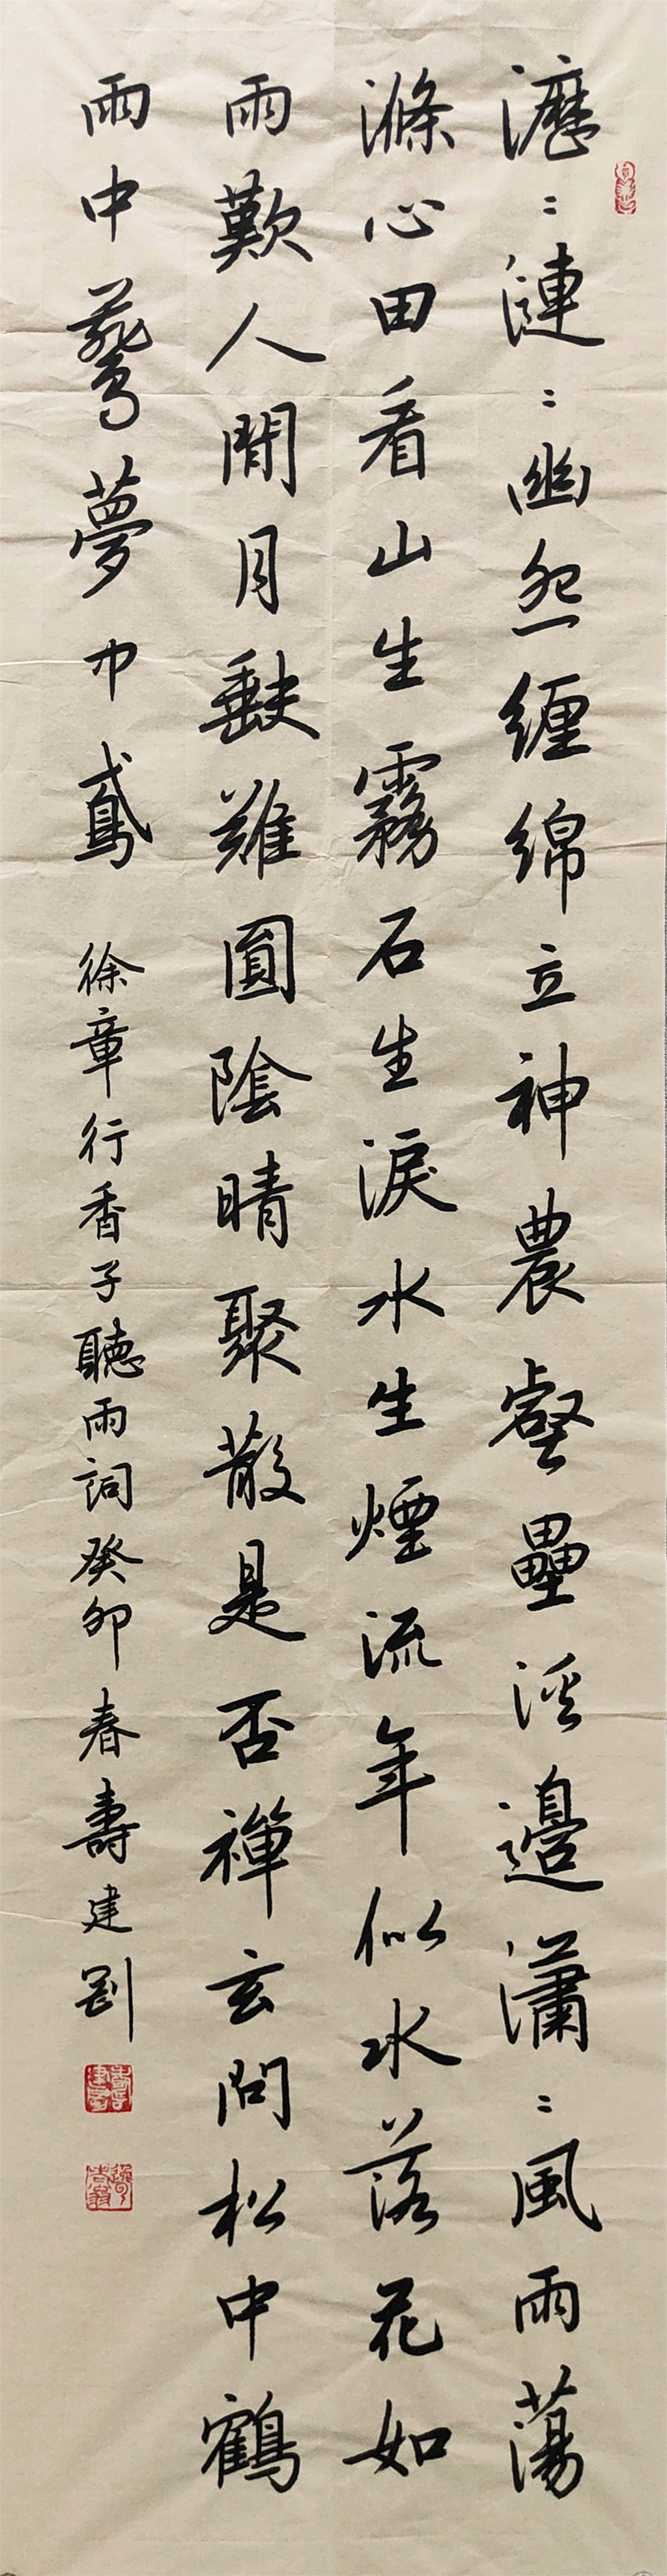 瀝〻漣〻幽怨纏綿立神農壑壘溪邊瀟〻風雨蕩
滌心田看山生霧石生淚水生煙流年似水落花如
雨歎人間月缺難圓陰晴聚散是否禪玄問松中鶴
雨中鶯夢中鳶
徐章行香子聽雨詞癸卯春壽建剛